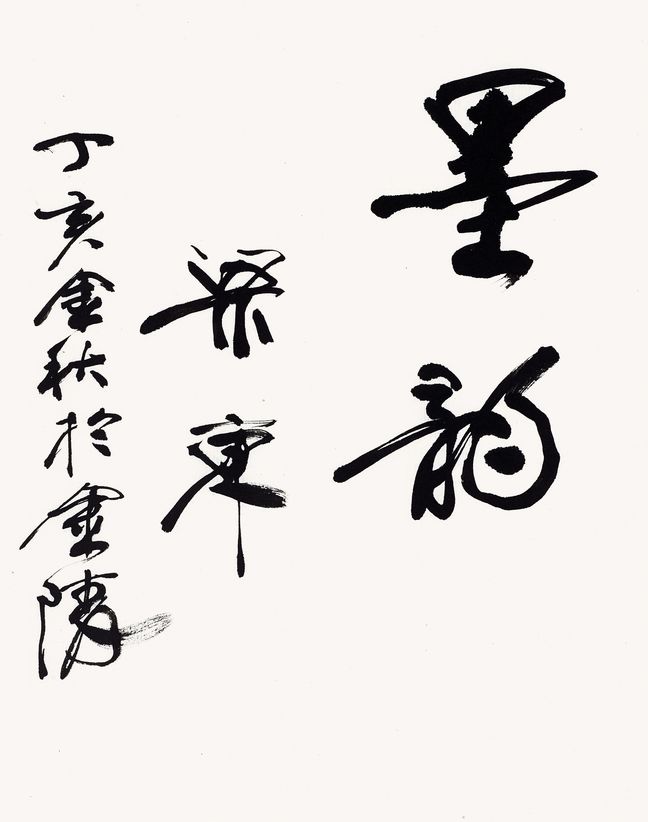 墨韵
梁
丁亥金秋於金陵